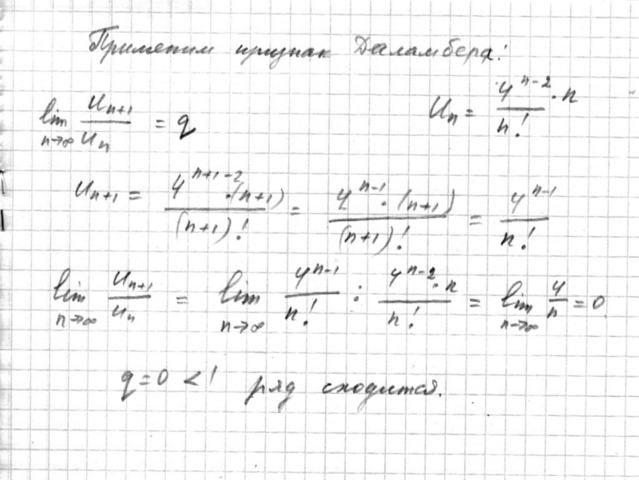 Применим признак Даламбера:
lim n→∞ U_{n+1}/U_n = q    U_n = 4^{n-2}·n / n!
U_{n+1} = 4^{n+1-2}·(n+1) / (n+1)! = 4^{n-1}·(n+1) / (n+1)! = 4^{n-1} / n!
lim n→∞ U_{n+1}/U_n = lim n→∞ 4^{n-1}/n! : 4^{n-2}·n / n! = lim n→∞ 4/n = 0
q=0 <1 ряд сходится.